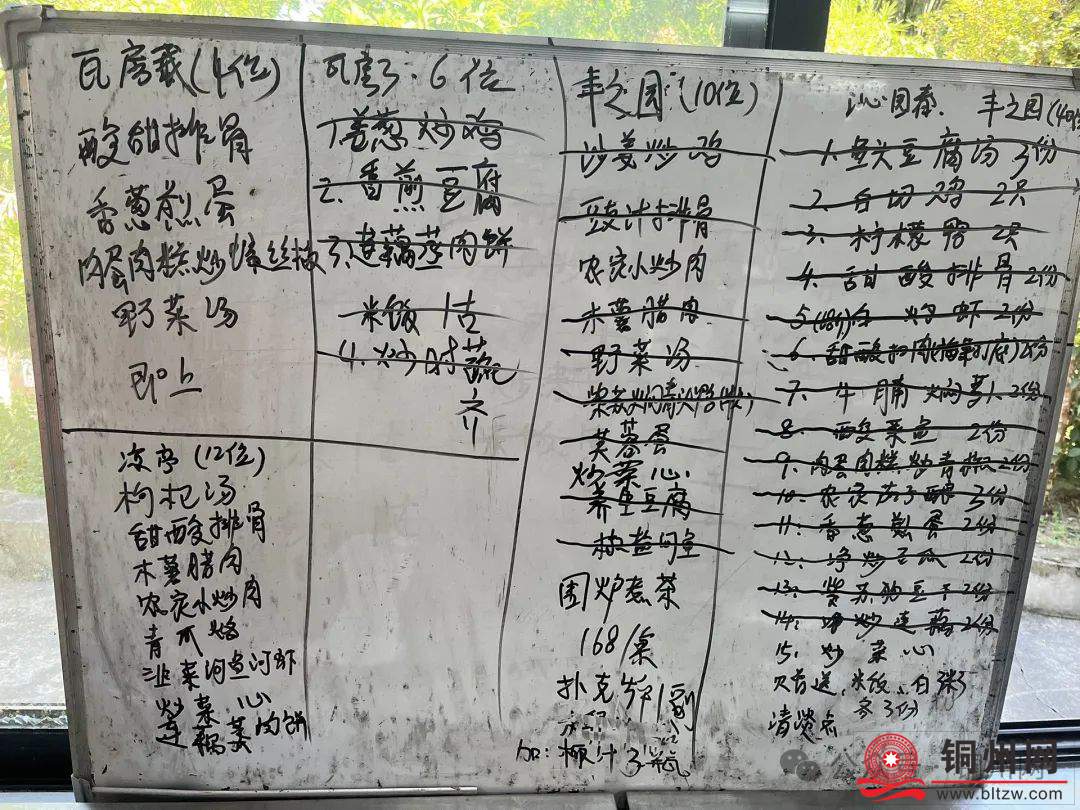 瓦房载(4位)
酸甜排骨
香葱煎蛋
肉蛋肉糕炒
野菜汤
即上
瓦房3·6位
葱炒鸡
2.香煎豆腐
3.莲藕蒸肉饼
米饭
4.炒时蔬
齐
丰之园(10位)
沙姜炒鸡
豉汁排骨
农家小炒肉
木薯腊肉
野菜汤
芙蓉蛋
炒菜心
养生豆腐
围炉煮茶
168/桌
扑克牌1副
加:椒汁3瓶
沁园春. 丰之园(40位
1.鱼头豆腐汤3份
2.白切鸡2只
3.柠檬鸭2只
4.甜酸排骨2份
5. 白灼虾2份
6.甜酸扣肉 2份
7.牛腩焖 2份
8.酸菜鱼2份
9.肉蛋肉糕炒青椒2份
10.农家茄子酿3份
11.香葱煎蛋2份
12.净炒 瓜2份
13.紫苏 豆干2份
14.净炒莲藕2份
15.炒菜心
送,米饭、白粥
各3份
凉亭(12位)
枸杞汤
甜酸排骨
木薯腊肉
农家小炒肉
青瓜烙
韭菜河鱼河虾
炒菜心
莲藕蒸肉饼
公众号
铜州网
www.bltzw.com